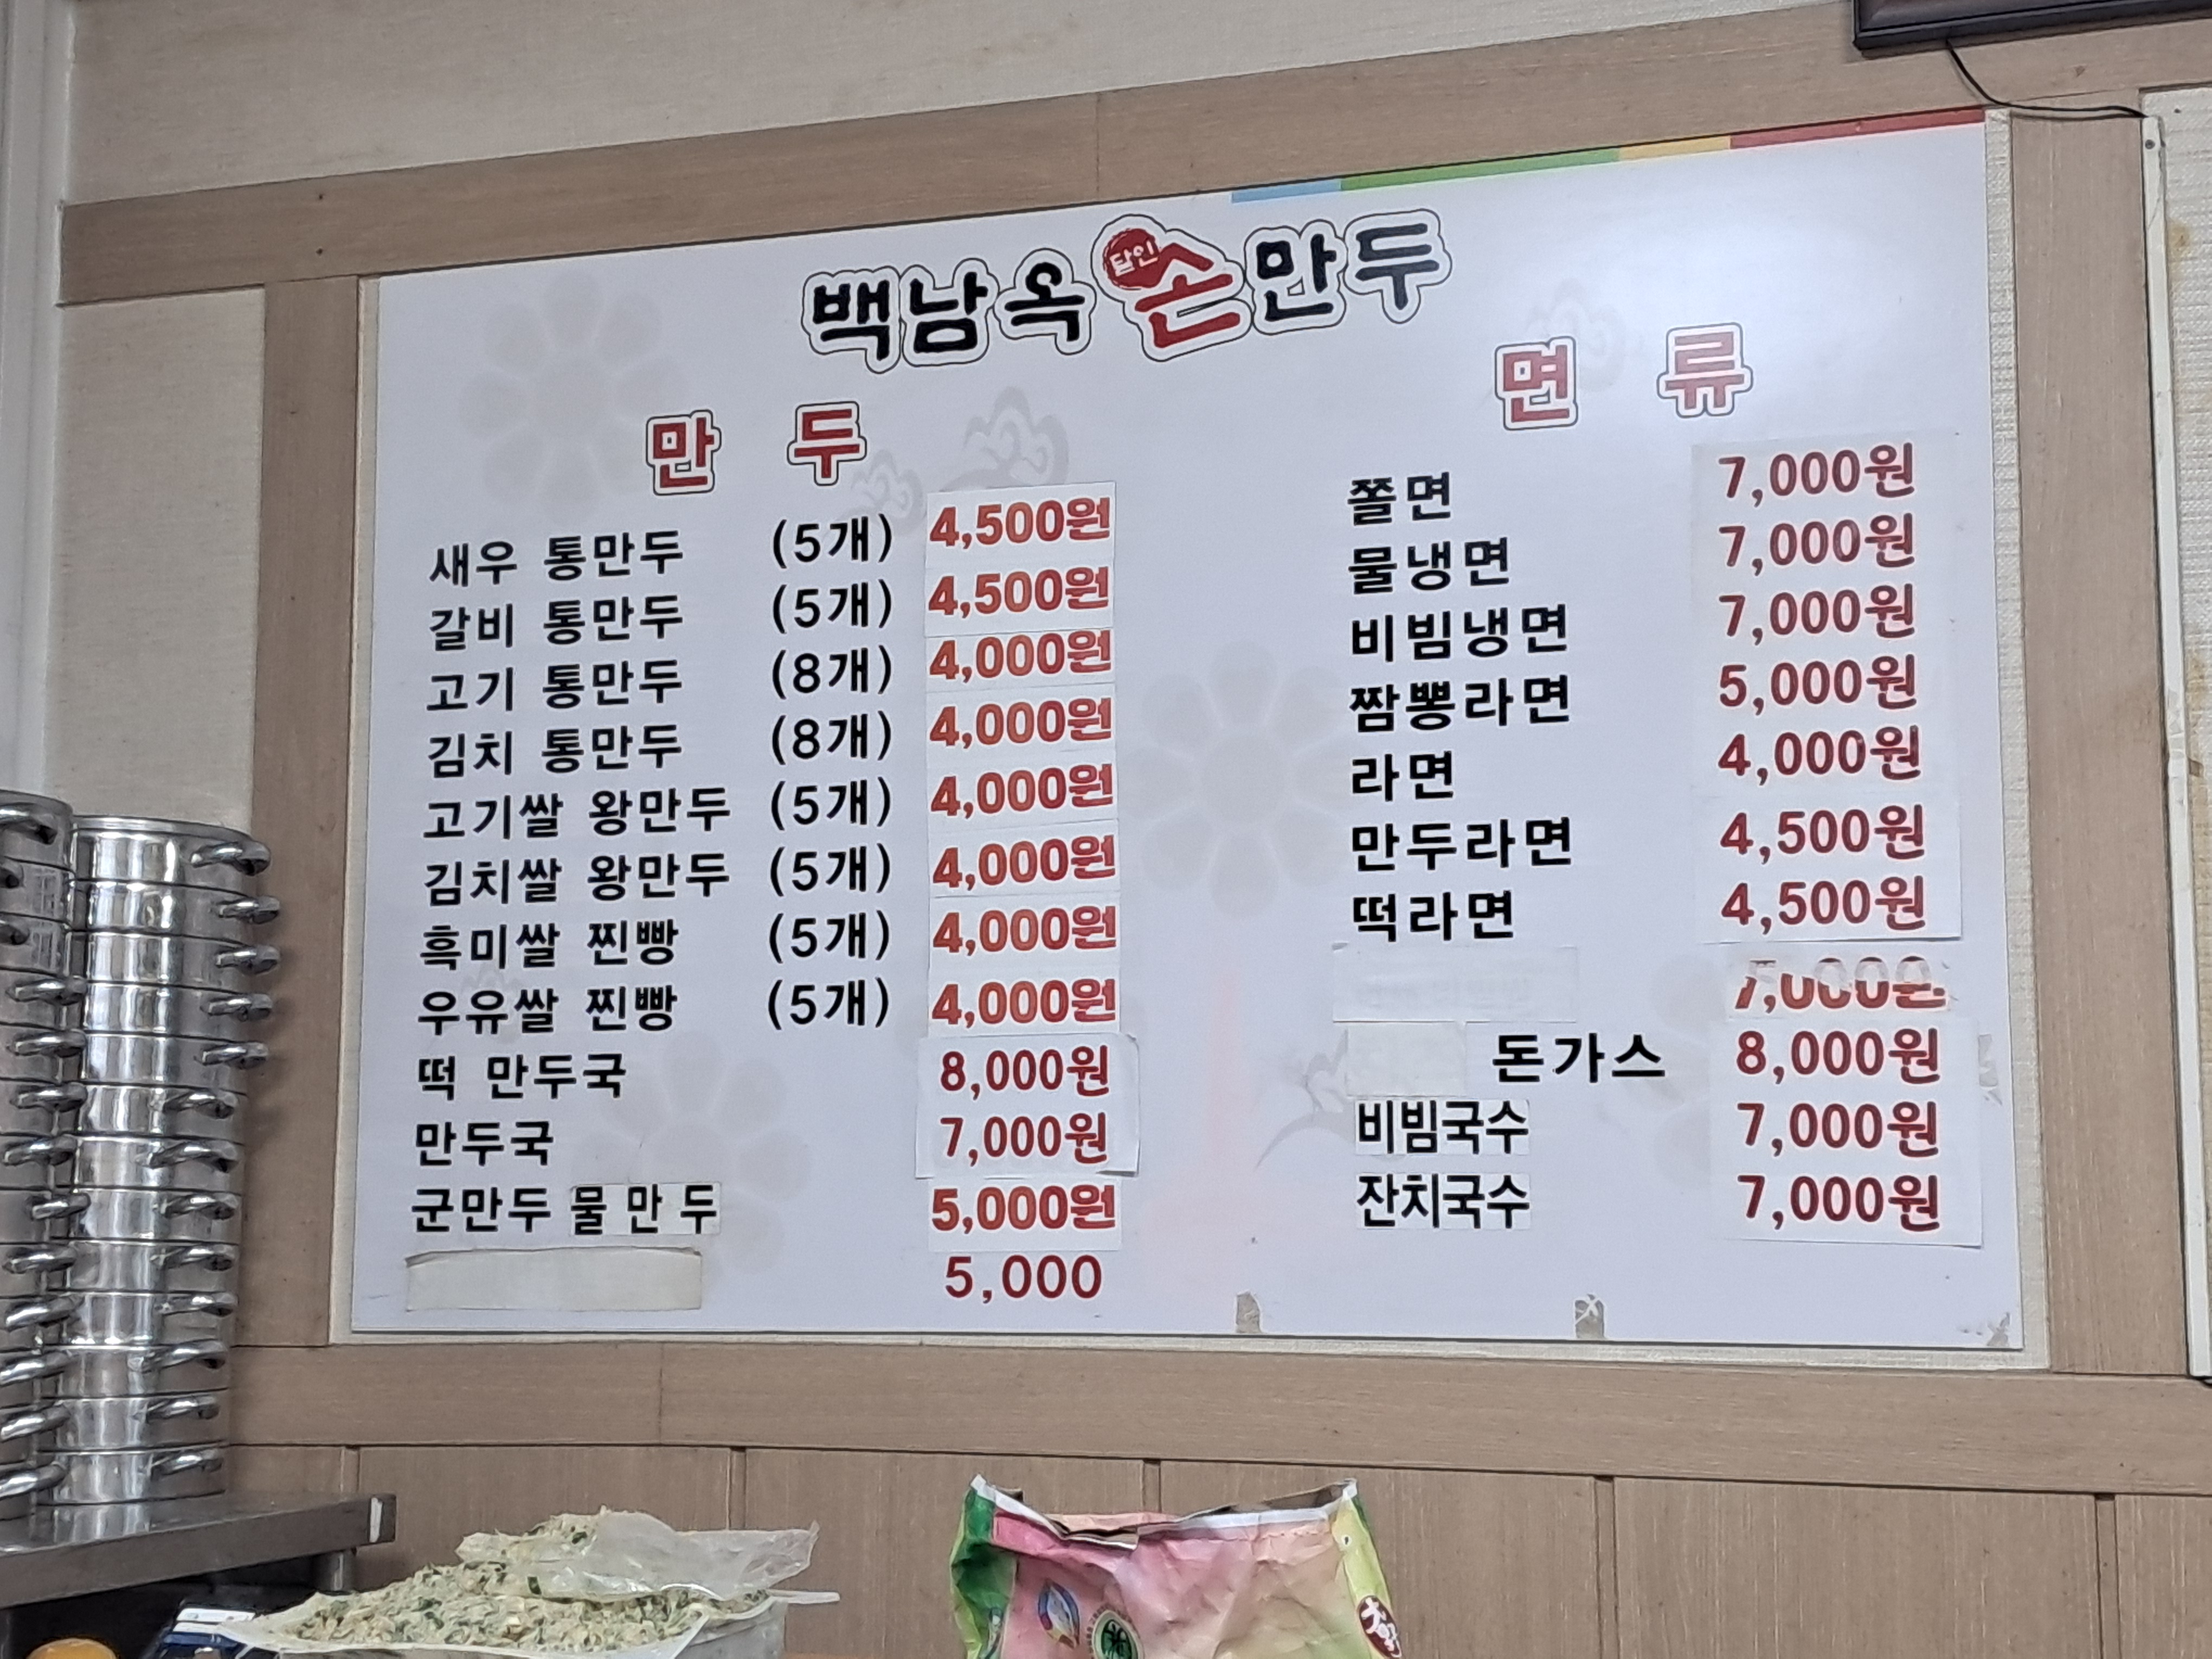 백남옥 달인 손만두
만두
새우 통만두 (5개) 4,500원
갈비 통만두 (5개) 4,500원
고기 통만두 (8개) 4,000원
김치 통만두 (8개) 4,000원
고기쌀 왕만두 (5개) 4,000원
김치쌀 왕만두 (5개) 4,000원
흑미쌀 찐빵 (5개) 4,000원
우유쌀 찐빵 (5개) 4,000원
떡 만두국 8,000원
만두국 7,000원
군만두 물만두 5,000원
5,000
면류
쫄면 7,000원
물냉면 7,000원
비빔냉면 7,000원
짬뽕라면 5,000원
라면 4,000원
만두라면 4,500원
떡라면 4,500원
돈가스 8,000원
비빔국수 7,000원
잔치국수 7,000원